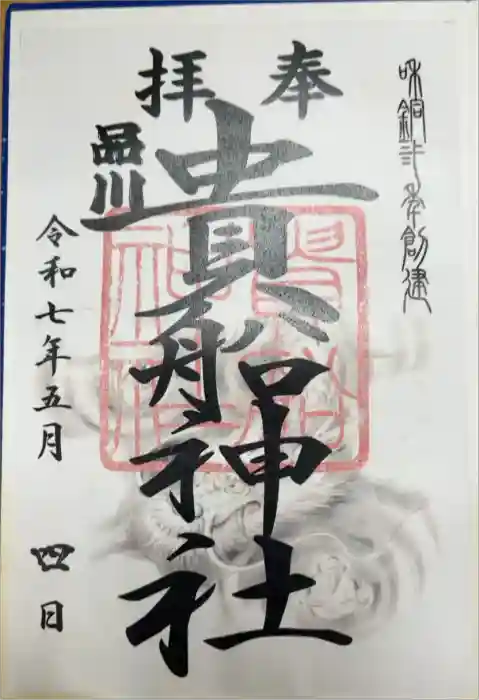 和銅弐年創建
奉拝
品川
貴船神社
令和七年五月四日